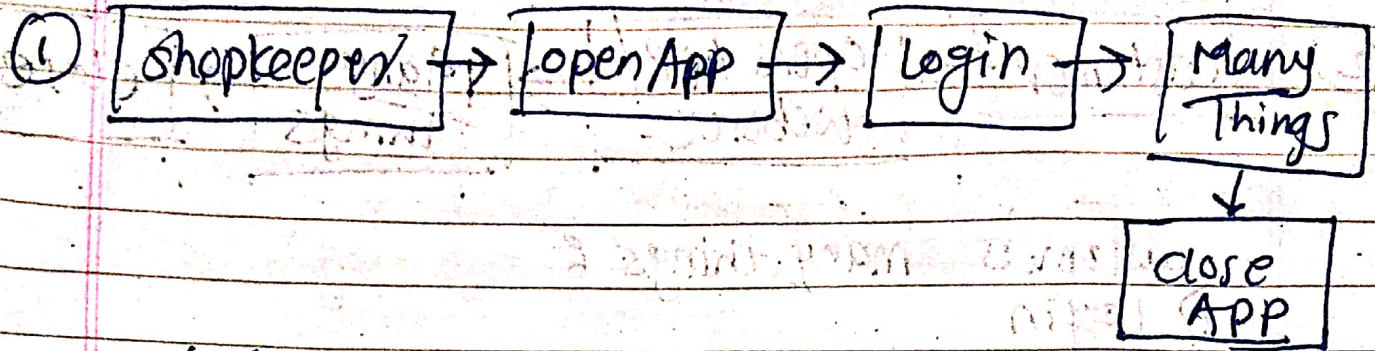 1 Shopkeeper → open App → Login → Many
Things
↓
close
APP